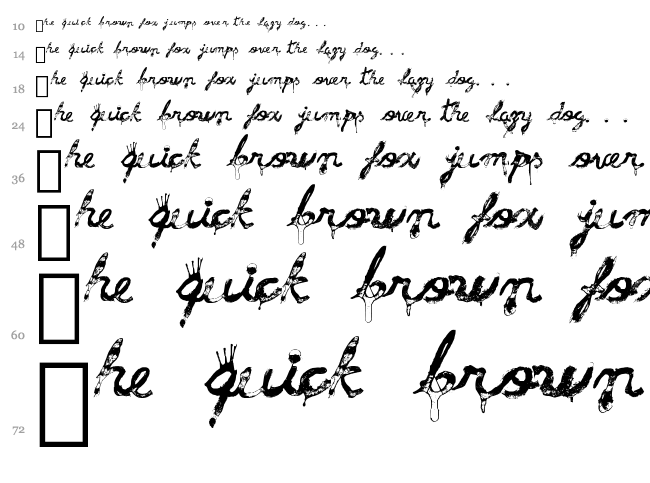 10 □he quick brown fox jumps over the lazy dog. . .
14 □he quick brown fox jumps over the lazy dog. . .
18 □he quick brown fox jumps over the lazy dog. . .
24 □he quick brown fox jumps over the lazy dog. . .
36 □he quick brown fox jumps over
48 □he quick brown fox jum
60 □he quick brown fox
72 □he quick brown